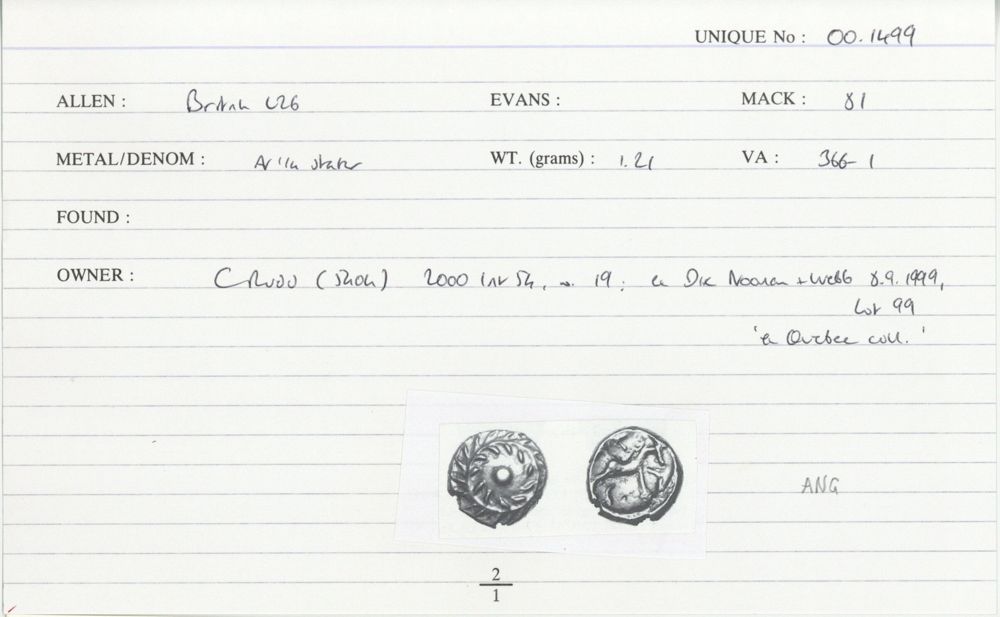 UNIQUE No : 00.1499
ALLEN : British L26 EVANS : MACK : 81
METAL/DENOM : AV 1/4 stater WT. (grams) : 1.21 VA : 366-1
FOUND :
OWNER : C Rudd (5404) 2000 List 54, no. 19 : ex Dix Noonan + Webb 8.9.1999,
Lot 99
'ex Quebec coll.'
ANG
2
1